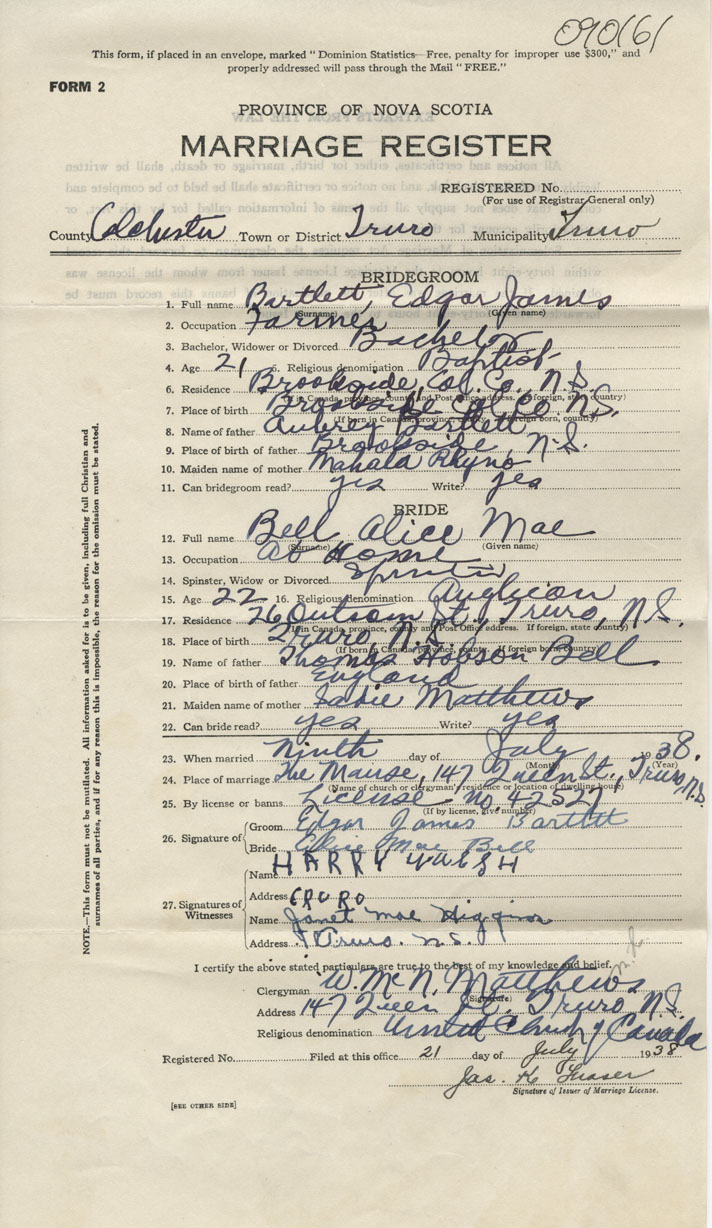 090161
This form, if placed in an envelope, marked "Dominion Statistics— Free, penalty for improper use $300," and
properly addressed will pass through the Mail "FREE."
FORM 2
PROVINCE OF NOVA SCOTIA
MARRIAGE REGISTER
REGISTERED No.
(For use of Registrar-General only)
County Colchester Town or District Truro Municipality Truro
BRIDEGROOM
1. Full name Bartlett, Edgar James
(Surname) (Given name)
2. Occupation Farmer
3. Bachelor, Widower or Divorced Bachelor
4. Age 21 5. Religious denomination Baptist
6. Residence Brookside, Col. Co., N.S.
(If in Canada, province, county and Post Office address. If foreign, state country)
7. Place of birth Brookside Col. Co. N.S.
(If born in Canada, province, county. If foreign born, country)
8. Name of father Aubrey Bartlett
9. Place of birth of father Brookside, N.S.
10. Maiden name of mother Mahala Rhyno
11. Can bridegroom read? yes Write? yes
BRIDE
12. Full name Bell, Alice Mae
(Surname) (Given name)
13. Occupation At Home
14. Spinster, Widow or Divorced Spinster
15. Age 22 16. Religious denomination Anglican
17. Residence 26 Outram St., Truro, N.S.
(If in Canada, province, county and Post Office address. If foreign, state country)
18. Place of birth Truro, N.S.
(If born in Canada, province, county. If foreign born, country)
19. Name of father Thomas Hobson Bell
20. Place of birth of father England
21. Maiden name of mother Sadie Matthews
22. Can bride read? yes Write? yes
23. When married Ninth day of July 1938.
(Month) (Year)
24. Place of marriage The Manse, 147 Queen St., Truro, N.S.
(Name of church or clergyman's residence or location of dwelling house)
25. By license or banns License No. 42527
(If by license, give number)
26. Signature of Groom Edgar James Bartlett
Bride Alice Mae Bell
27. Signatures of Witnesses
Name HARRY WALSH
Address TRURO
Name Janet Mae Higgins
Address Truro. N.S.
I certify the above stated particulars are true to the best of my knowledge and belief.
Clergyman W. McN. Matthews
(Signature)
Address 147 Queen St. Truro N.S.
Religious denomination United Church of Canada
Registered No. Filed at this office 21 day of July 1938
Jas. K. Fraser
Signature of Issuer of Marriage License.
[SEE OTHER SIDE]
NOTE.—This form must not be mutilated. All information asked for is to be given, including full Christian and
surnames of all parties, and if for any reason this is impossible, the reason for the omission must be stated.